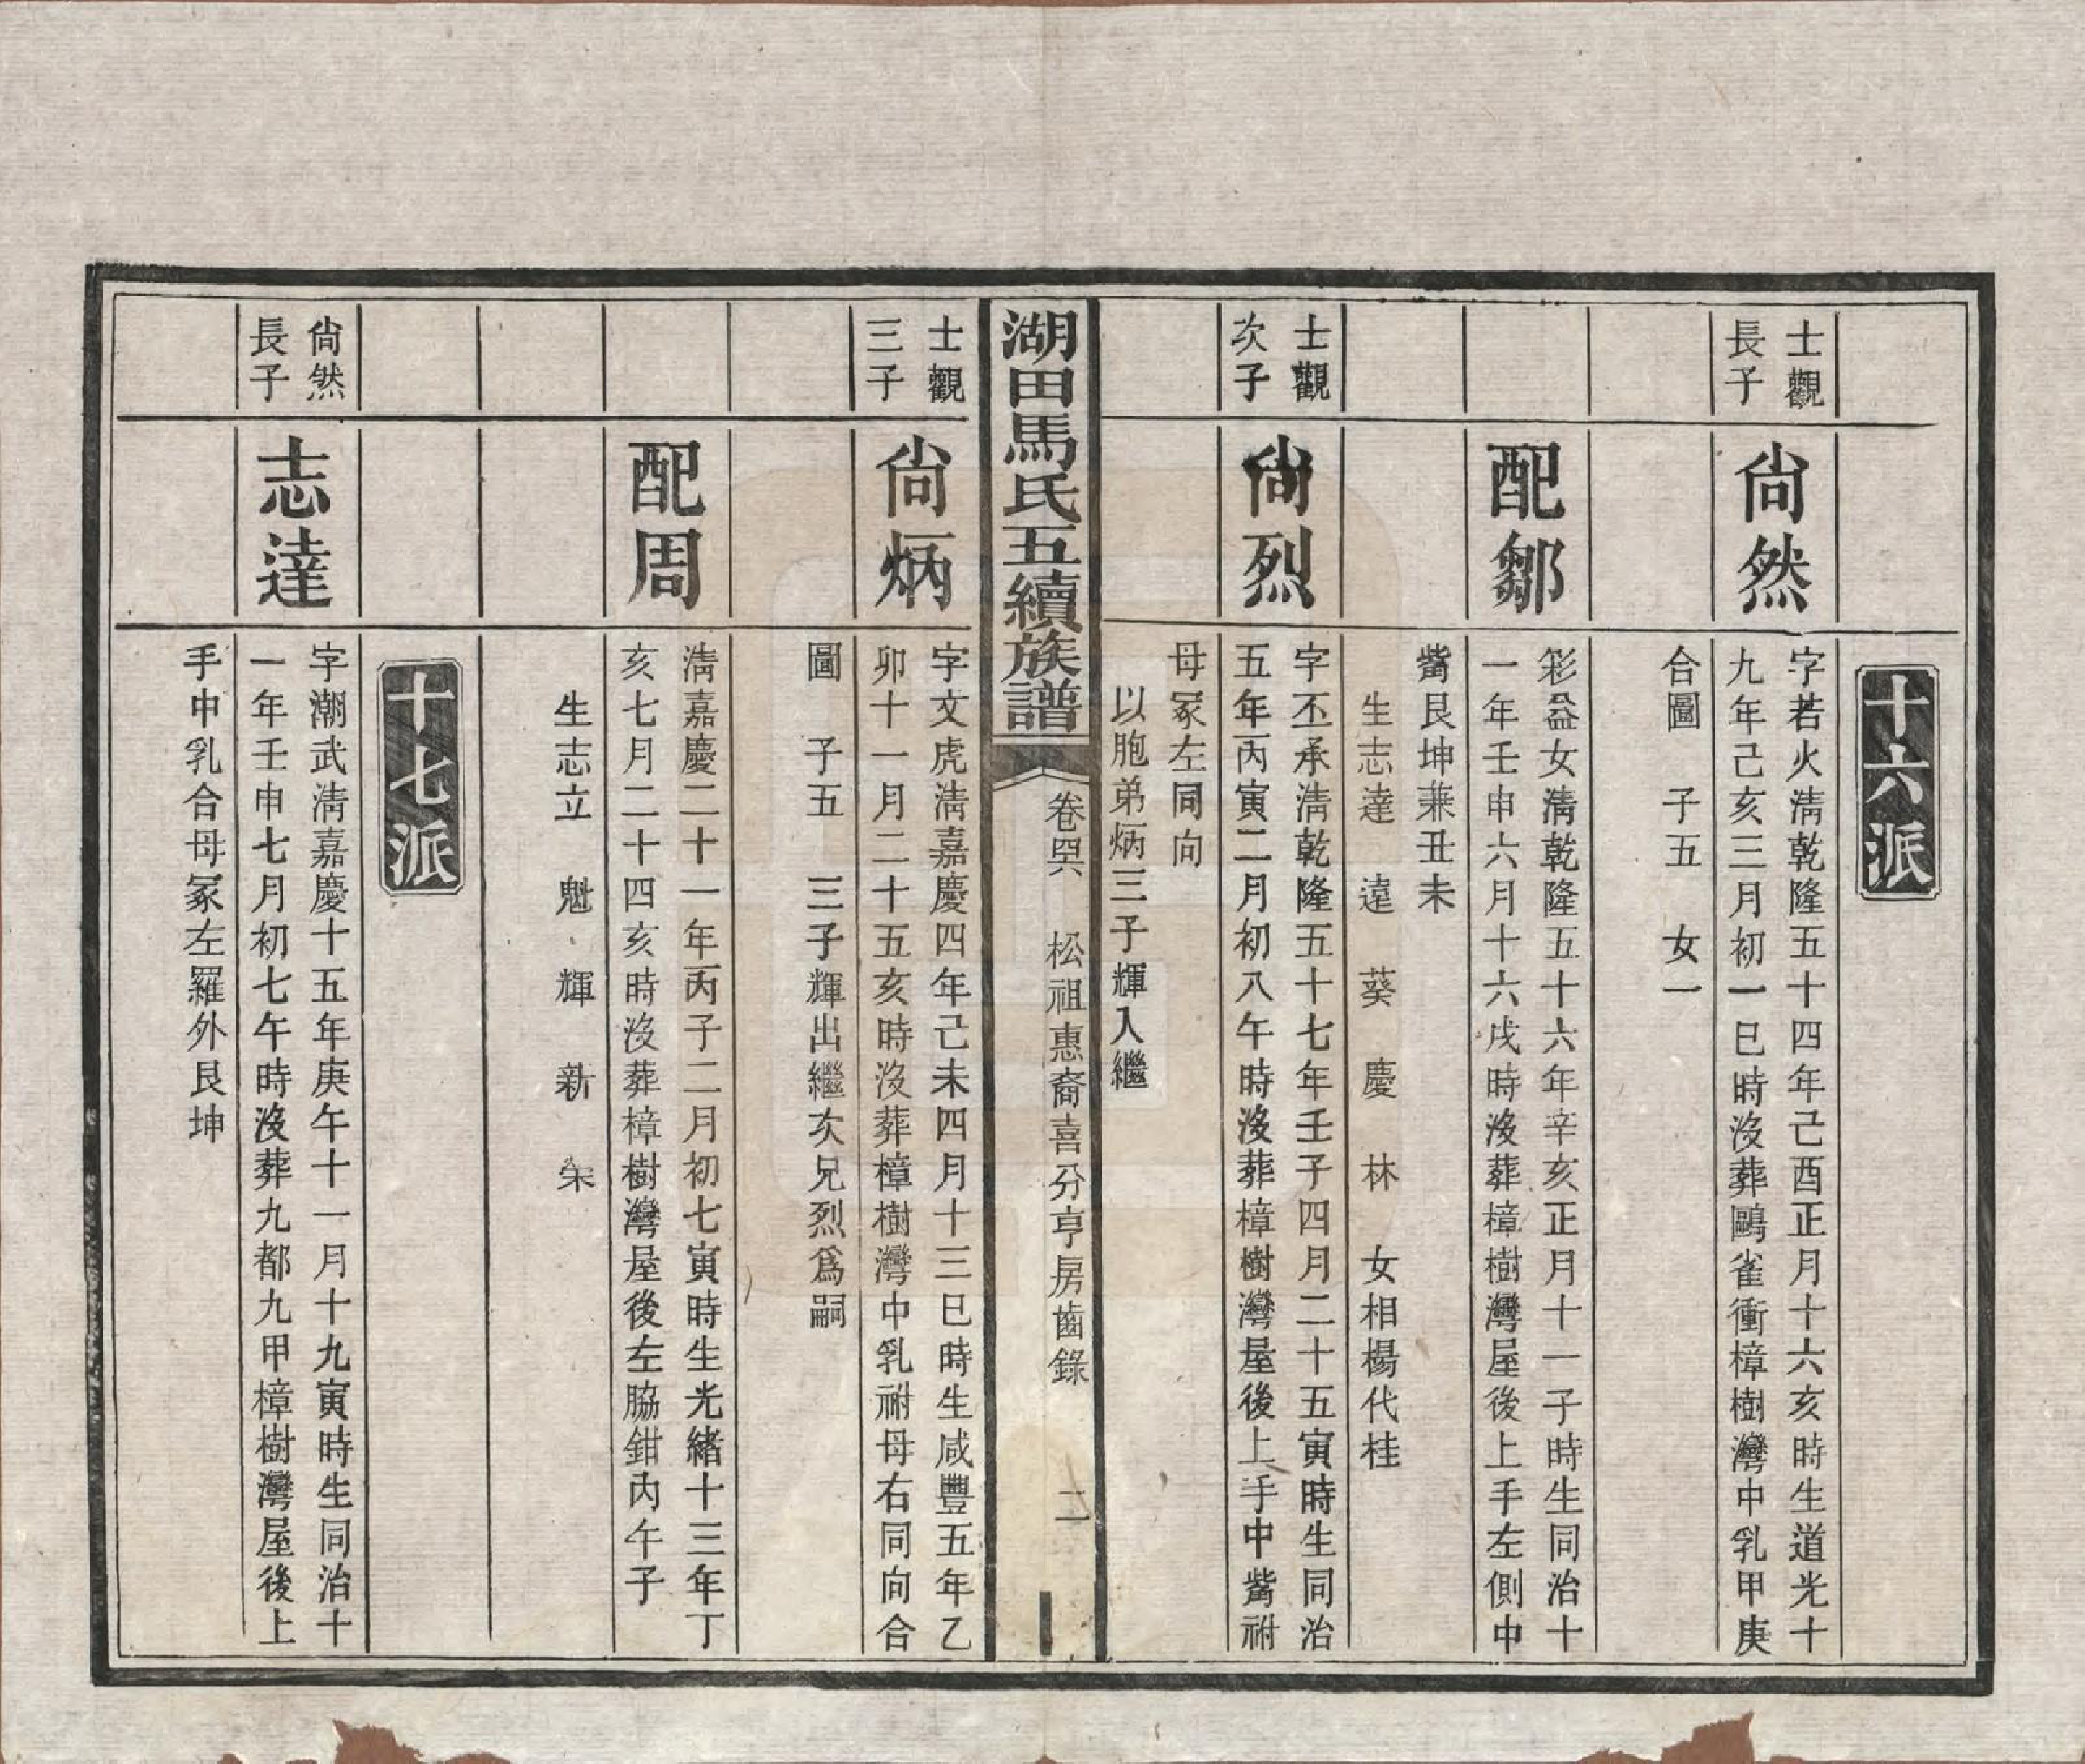 十六派
士觀
長子
尙然
字若火淸乾隆五十四年己酉正月十六亥時生道光十
九年己亥三月初一巳時沒葬鷗雀衝樟樹灣中乳甲庚
合圖　子五　女一
配鄒
彩益女淸乾隆五十六年辛亥正月十一子時生同治十
一年壬申六月十六戌時沒葬樟樹灣屋後上手左側中
觜艮坤兼丑未
生志達　遠　葵　慶　林　女相楊代桂
士觀
次子
尙烈
字丕承淸乾隆五十七年壬子四月二十五寅時生同治
五年丙寅二月初八午時沒葬樟樹灣屋後上手中觜祔
母冢左同向
以胞弟炳三子輝入繼
湖田馬氏五續族譜
卷四六　松祖惠裔喜分亨房齒錄
二
士觀
三子
尙炳
字文虎淸嘉慶四年己未四月十三巳時生咸豐五年乙
卯十一月二十五亥時沒葬樟樹灣中乳祔母右同向合
圖　子五　三子輝出繼次兄烈爲嗣
配周
淸嘉慶二十一年丙子二月初七寅時生光緒十三年丁
亥七月二十四亥時沒葬樟樹灣屋後左脇鉗內午子
生志立　魁　輝　新　榮
十七派
尙然
長子
志達
字潮武淸嘉慶十五年庚午十一月十九寅時生同治十
一年壬申七月初七午時沒葬九都九甲樟樹灣屋後上
手中乳合母冢左羅外艮坤